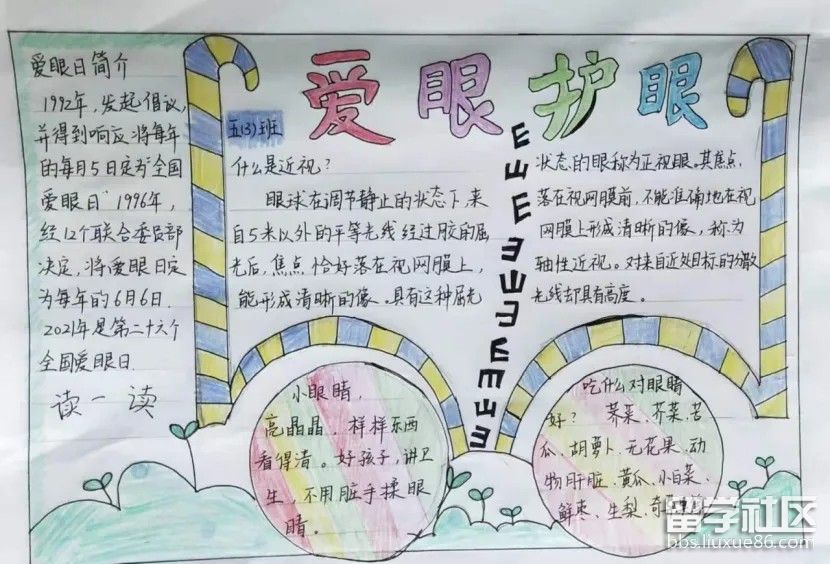 爱眼护眼
爱眼日简介
1992年，发起倡议，
并得到响应将每年
的每月5日定为“全国
爱眼日”1996年，
经12个联合委员部
决定，将爱眼日定
为每年的6月6日.
2021年是第二十六个
全国爱眼日.
读一读
五(3)班
什么是近视？
眼球在调节静止的状态下，来
自5米以外的平等光线经过
的屈
光后，焦点恰好落在视网膜上，
能形成清晰的像。具有这种屈光
状态的眼称为正视眼。其焦点
落在视网膜前，不能准确地在视
网膜上形成清晰的像，称为
轴性近视。对来自近处目标的分散
光线却具有高度。
E
E
E
E
E
E
E
E
E
E
E
小眼睛，
亮晶晶，样样东西
看得清。好孩子，讲卫
生，不用脏手揉眼
睛。
吃什么对眼睛
好？ 荠菜、芥菜、苦
瓜、胡萝卜、无花果、动
物肝脏、黄瓜、小白菜、
鲜枣、生梨、奇
留学社区
bbs.liuxue86.com